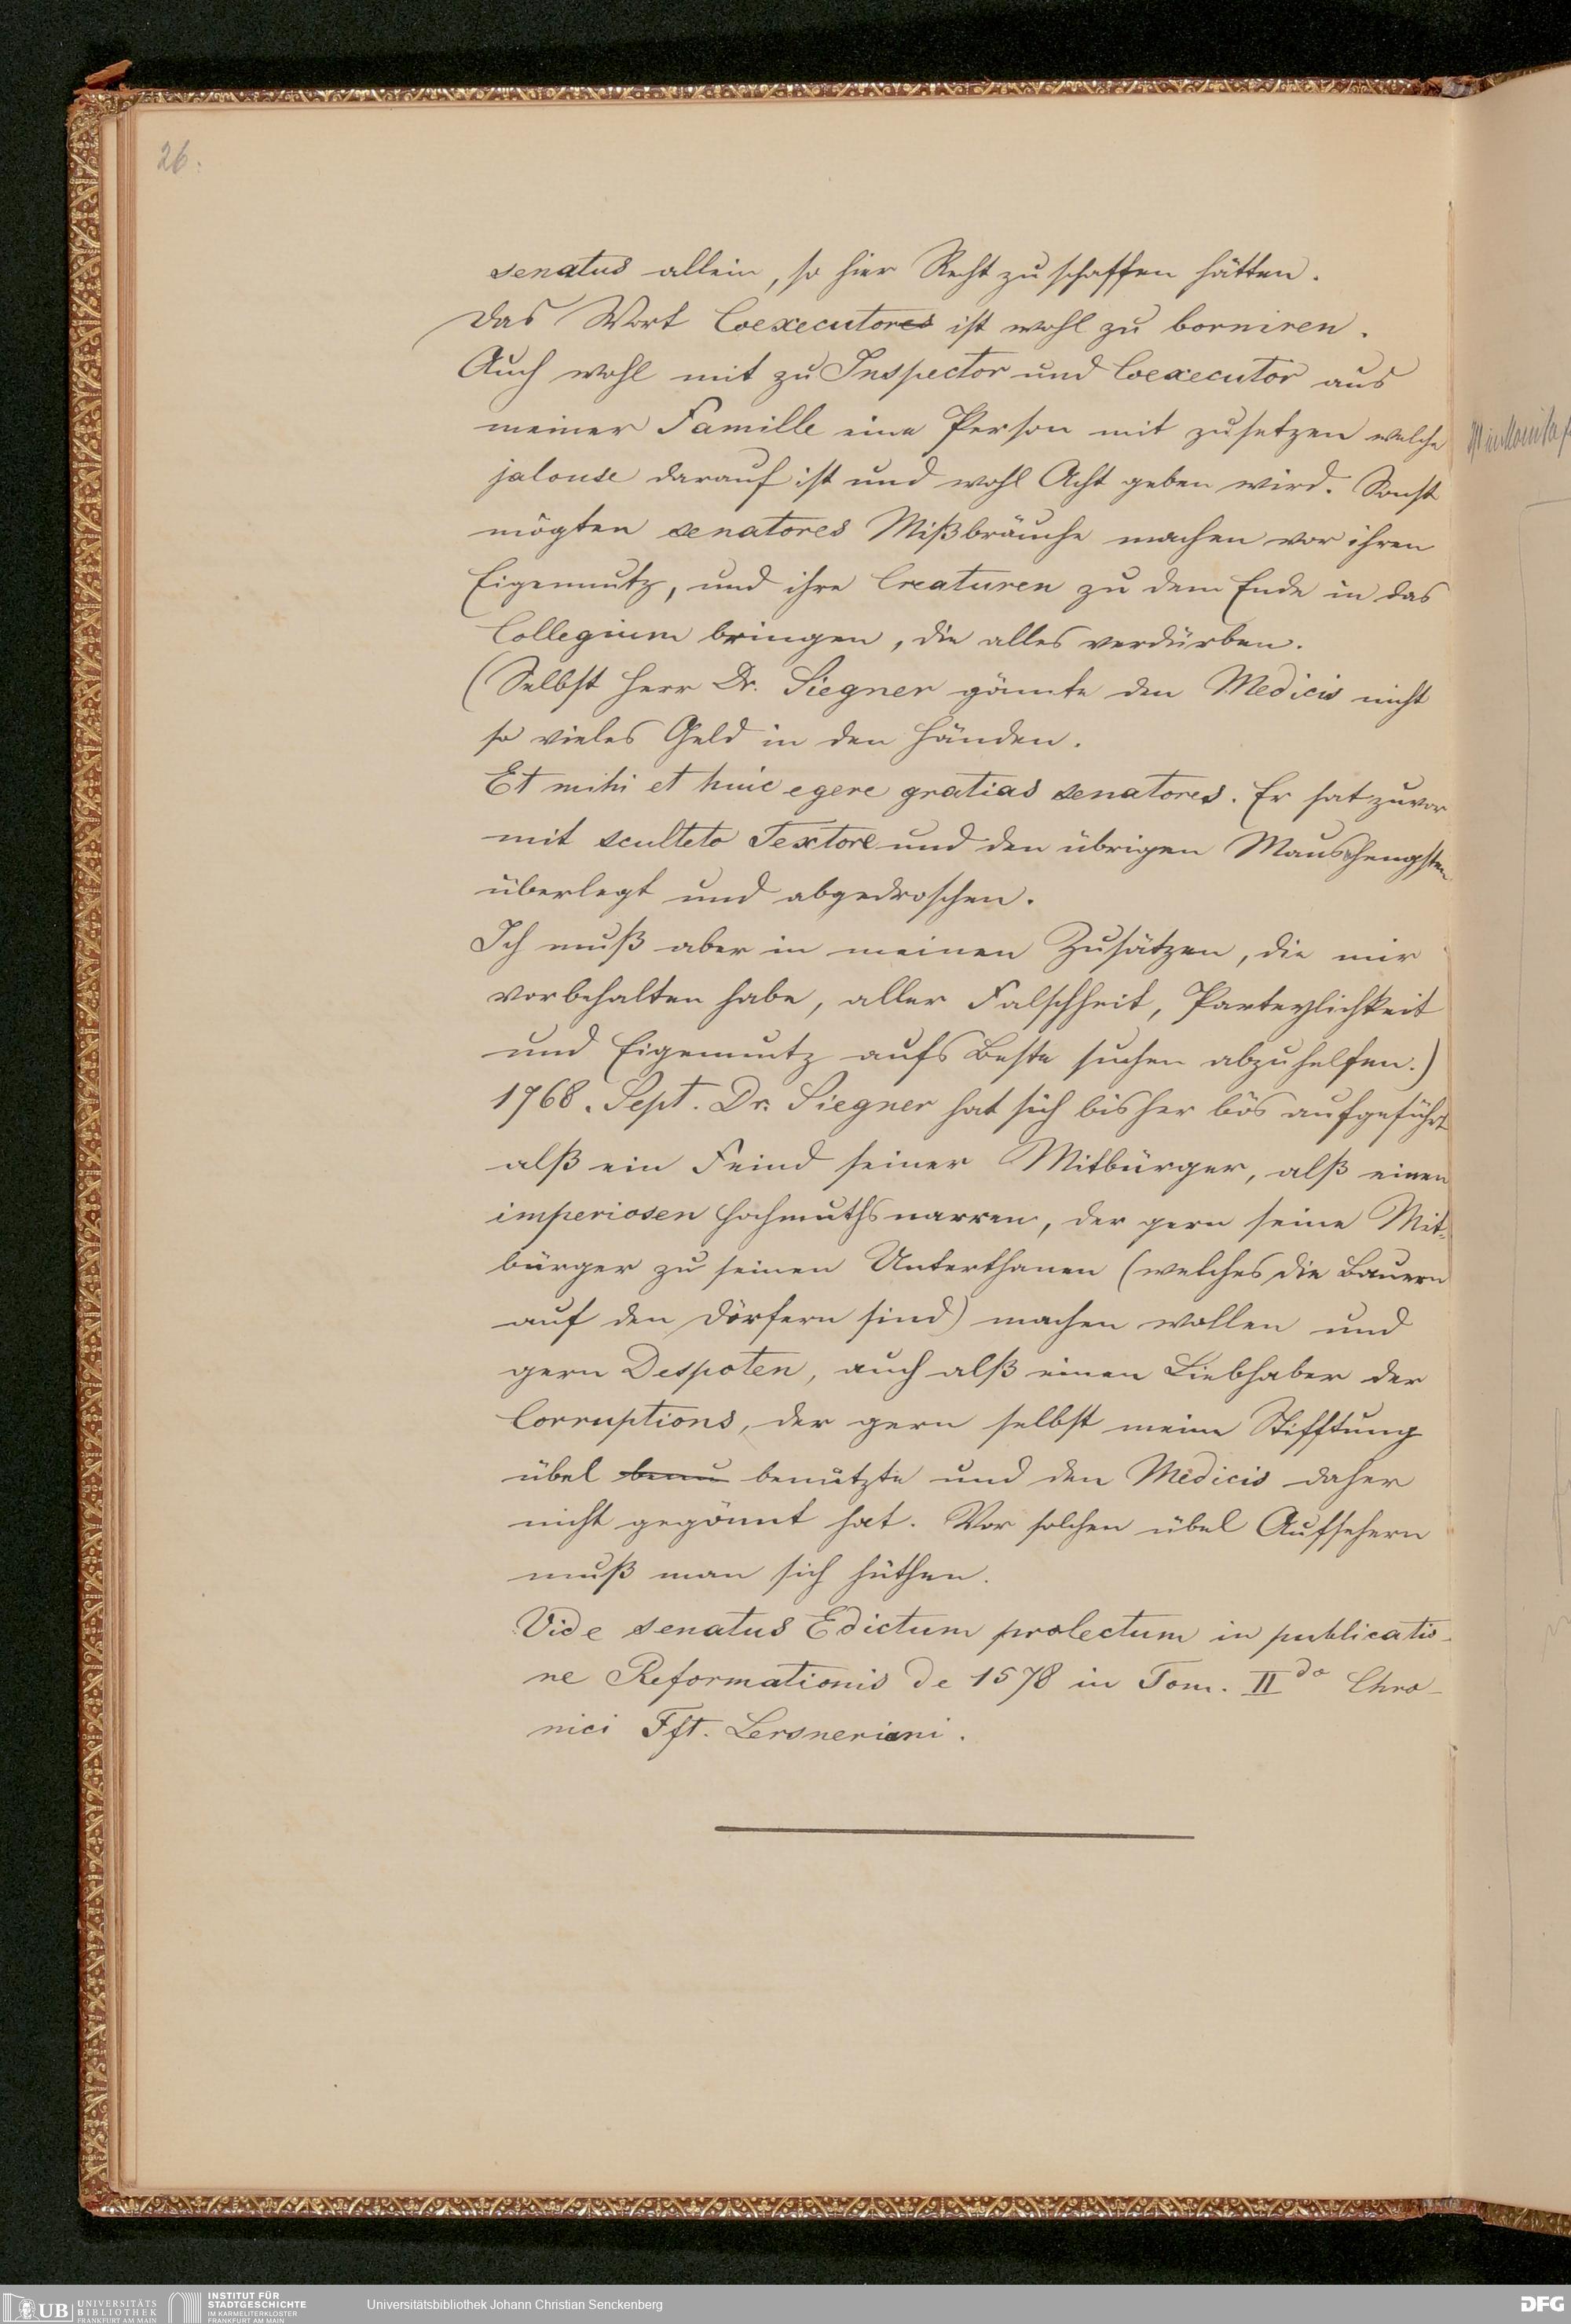 26.
senatus allein, so hier Recht zu schaffen hätten.
Das Wort Coexecutores ist wohl zu borniren.
Auch wohl mit zu Inspector und Coexecutor aus
meiner Famille eine Person mit zusetzen welche
jalouse darauf ist und wohl Acht geben wird. Sonst
mögten senatores Mißbräuche machen vor ihren
Eigennutz, und ihre Creaturen zu dem Ende in das
Collegium bringen, die alles verdürben.
(Selbst Herr Dr. Siegner gönnte den Medicis nicht
so vieles Geld in den Händen.
Et mihi et huic egere gratias senatores. Er hat zuvor
mit sculteto Textore und den übrigen Maushengsten
überlegt und abgedroschen.
Ich muß aber in meinen Zusätzen, die mir
vorbehalten habe, aller Falschheit, Parteylichkeit
und Eigennutz aufs Beste suchen abzuhelfen.)
1768. Sept. Dr. Siegner hat sich bisher bös aufgeführt
alß ein Feind seiner Mitbürger, alß einen
imperiosen Hochmuthsnarren, der gern seine Mit-
bürger zu seinen Unterthanen (welches die Bauern
auf den Dörfern sind) machen wollen und
gern Despoten, auch alß einen Liebhaber der
Corruptions, der gern selbst meine Stifftung
übel benu benutzte und den Medicis daher
nicht gegönnt hat. Vor solchen übel Aufsehern
muß man sich hüthen.
Vide senatus Edictum prolectum in publicatio-
ne Reformationis de 1578 in Tom. II do Chro-
nici Fft. Lersneriani.
UB UNIVERSITÄTS
BIBLIOTHEK
FRANKFURT AM MAIN
INSTITUT FÜR
STADTGESCHICHTE
IM KARMELITERKLOSTER
FRANKFURT AM MAIN
Universitätsbibliothek Johann Christian Senckenberg
DFG